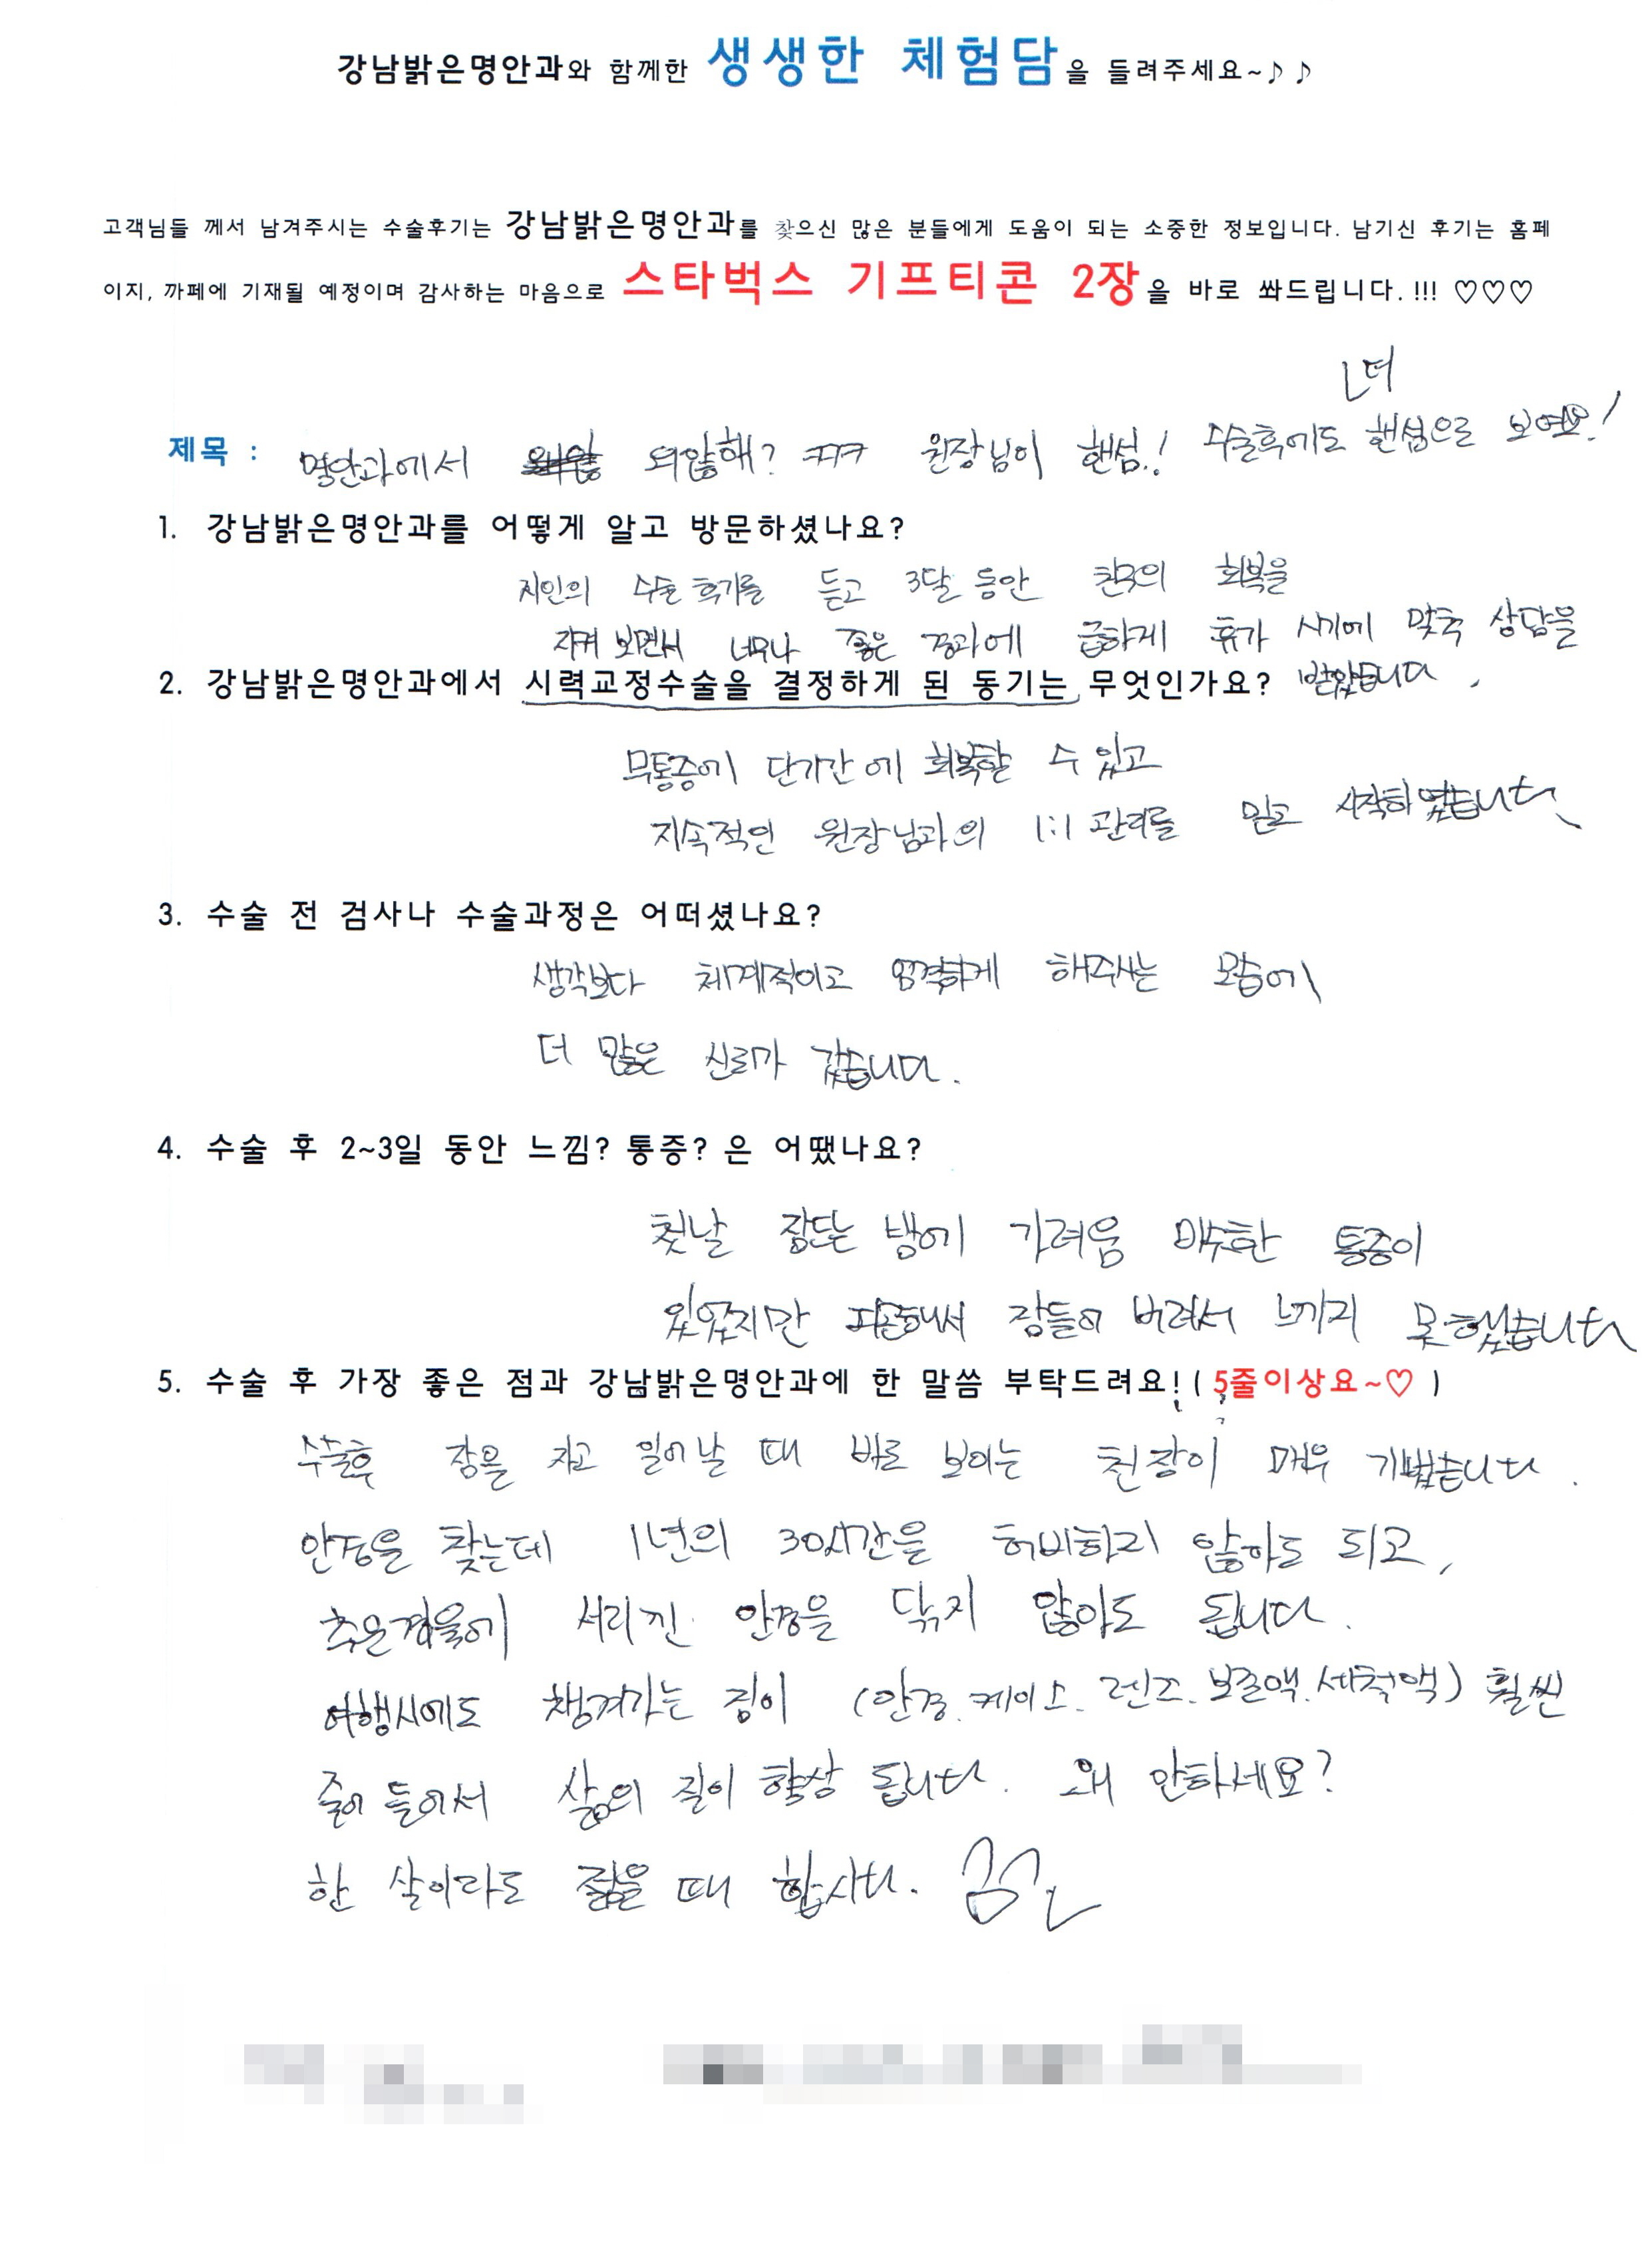 강남밝은명안과와 함께한 생생한 체험담을 들려주세요~♪♪
고객님들 께서 남겨주시는 수술후기는 강남밝은명안과를 찾으신 많은 분들에게 도움이 되는 소중한 정보입니다. 남기신 후기는 홈페
이지, 까페에 기재될 예정이며 감사하는 마음으로 스타벅스 기프티콘 2장을 바로 쏴드립니다.!!! ♡♡♡
더
제목 : 명안과에서 되않해? ㅋㅋㅋ 원장님이 핸섬! 수술후에도 핸섬으로 보여요!
1. 강남밝은명안과를 어떻게 알고 방문하셨나요?
지인의 수술 후기를 듣고 3달 동안 친구의 회복을
지켜 보면서 너무나 좋은 경과에 급하게 휴가 시기에 맞춰 상담을
2. 강남밝은명안과에서 시력교정수술을 결정하게 된 동기는 무엇인가요? 받았습니다.
무통증에 단기간에 회복할 수 있고
지속적인 원장님과의 1:1 관리를 믿고 시작하였습니다.
3. 수술 전 검사나 수술과정은 어떠셨나요?
생각보다 체계적이고 엄격하게 해주시는 모습에
더 많은 신뢰가 갔습니다.
4. 수술 후 2~3일 동안 느낌? 통증? 은 어땠나요?
첫날 잠드는 밤에 가려움 비슷한 통증이
있었지만 피곤해서 잠들어 버려서 느끼지 못했습니다
5. 수술 후 가장 좋은 점과 강남밝은명안과에 한 말씀 부탁드려요!(5줄이상요~♡)
수술후 잠을 자고 일어날 때 바로 보이는 천장이 매우 기뻤습니다.
안경을 찾는데 1년의 30시간을 허비하지 않아도 되고,
추운겨울에 서리낀 안경을 닦지 않아도 됩니다.
여행시에도 챙겨가는 짐이 (안경.케이스.렌즈.보존액.세척액) 훨씬
줄어 들어서 삶의 질이 향상 됩니다. 왜 안하세요?
한 살이라도 젊을 때 합시다.